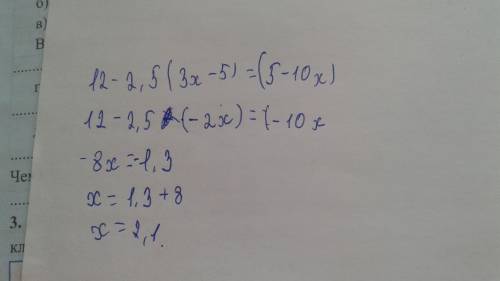 б)
в)
В
12 - 2,5 (3x - 5) = (5 - 10x)
12 - 2,5 (- 2x) = (- 10x
- 8x = -1,3
Чем
x = 1,3 + 8
3.
x = 2,1.
кл